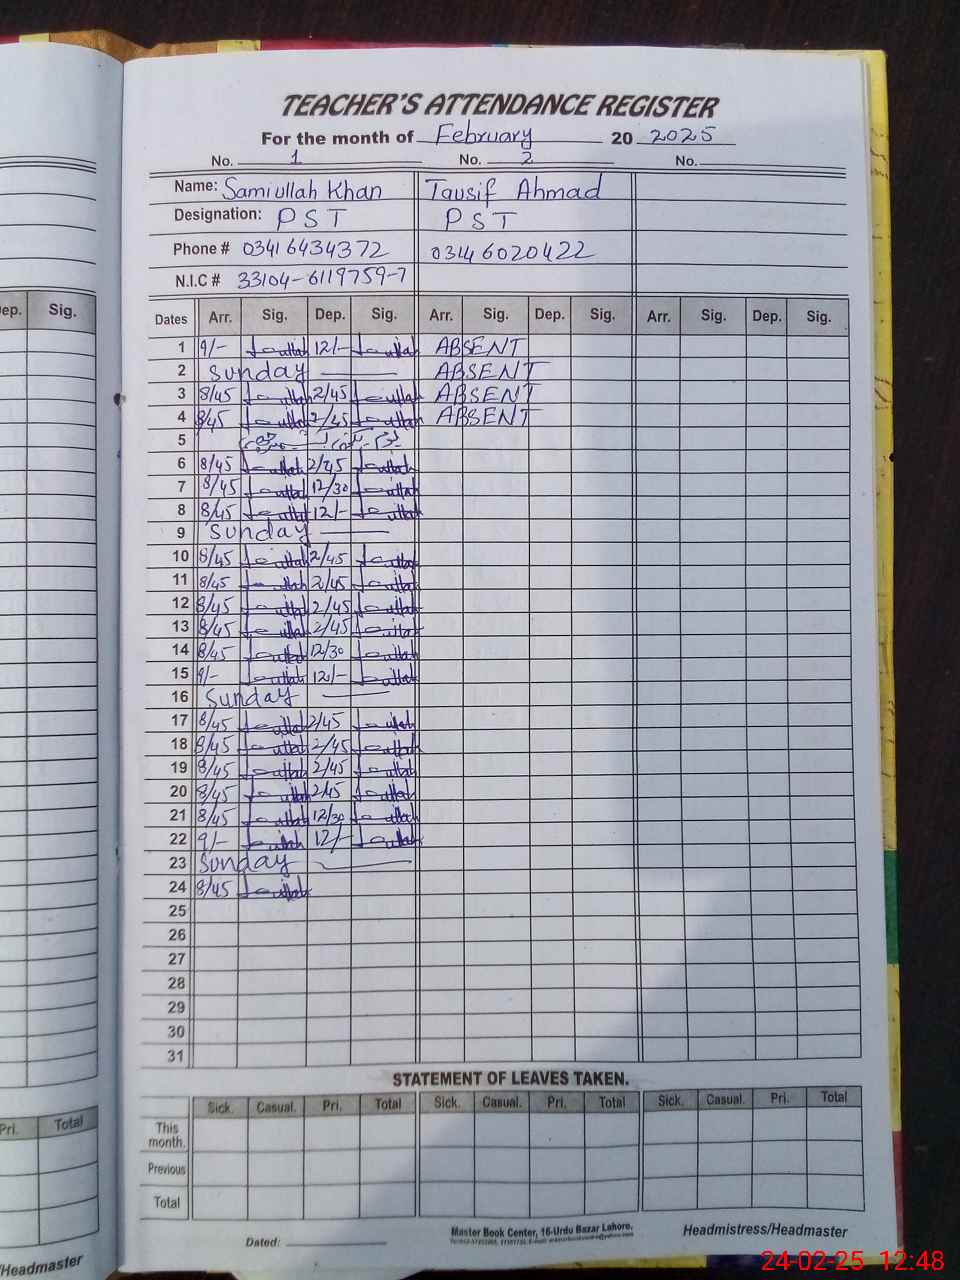 TEACHER'S ATTENDANCE REGISTER
For the month of February 20 2025
No. 1 No. 2 No.
Name: Samiullah Khan Tausif Ahmad
Designation: PST PST
Phone # 03416434372 03146020422
N.I.C # 33104-6119759-7
Dates Arr. Sig. Dep. Sig. Arr. Sig. Dep. Sig. Arr. Sig. Dep. Sig.
ep. Sig.
1 9/- 12/- ABSENT
2 Sunday ABSENT
3 8/45 2/45 ABSENT
4 8/45 2/45 ABSENT
5
6 8/45 2/45
7 8/45 12/30
8 8/45 12/-
9 Sunday
10 8/45 2/45
11 8/45 2/45
12 8/45 2/45
13 8/45 2/45
14 8/45 12/30
15 9/- 12/-
16 Sunday
17 8/45 2/45
18 8/45 2/45
19 8/45 2/45
20 8/45 2/45
21 8/45 12/30
22 9/- 12/-
23 Sunday
24 8/45
25
26
27
28
29
30
31
STATEMENT OF LEAVES TAKEN.
Sick. Casual. Pri. Total Sick. Casual. Pri. Total Sick. Casual. Pri. Total
Pri. Total
This month.
Previous
Total
Dated:
Master Book Center, 16-Urdu Bazar Lahore.
Headmistress/Headmaster
/Headmaster
24-02-25 12:48